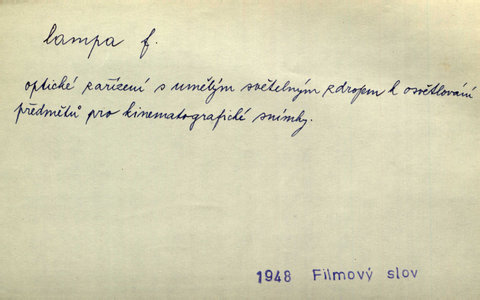 lampa f.
optické zařízení s umělým světelným zdrojem k osvětlování
předmětů pro kinematografické snímky.
1948 Filmový slov